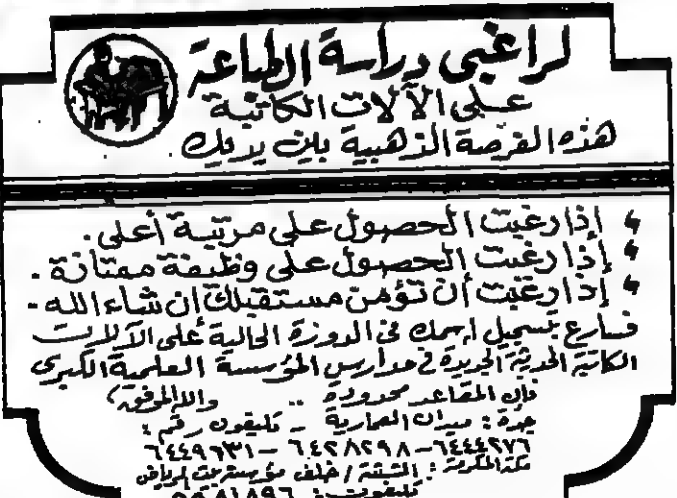 لراغبي دراسة الطباعة
على الآلات الكاتبة
هذه الفرصة الذهبية بين يديك
إذا رغبت الحصول على مرتبة أعلى.
إذا رغبت الحصول على وظيفة ممتازة.
إذا رغبت أن تؤمن مستقبلك إن شاء الله -
فسارع بتسجيل اسمك في الدورة الحالية على الآلات
الكاتبة الحديثة الجديدة في مدارس المؤسسة العلمية الكبرى
فإن المقاعد محدودة .. والله الموفق
جدة : ميدان العمارية - تليفون رقم :
٦٤٤٤٢٧٦-٦٤٢٨٢٩٨-٦٤٤٩٦٣١
مكة المكرمة : / خلف مؤسسة الرياض
تليفون : ٥٥٨١٨٩٦